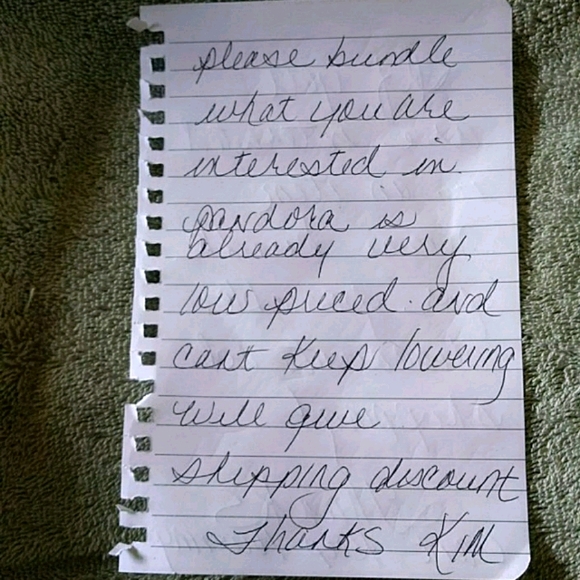 please bundle
what you are
interested in.
pandora is
already very
low priced. and
cant keep lowering
will give
shipping discount
Thanks Kim